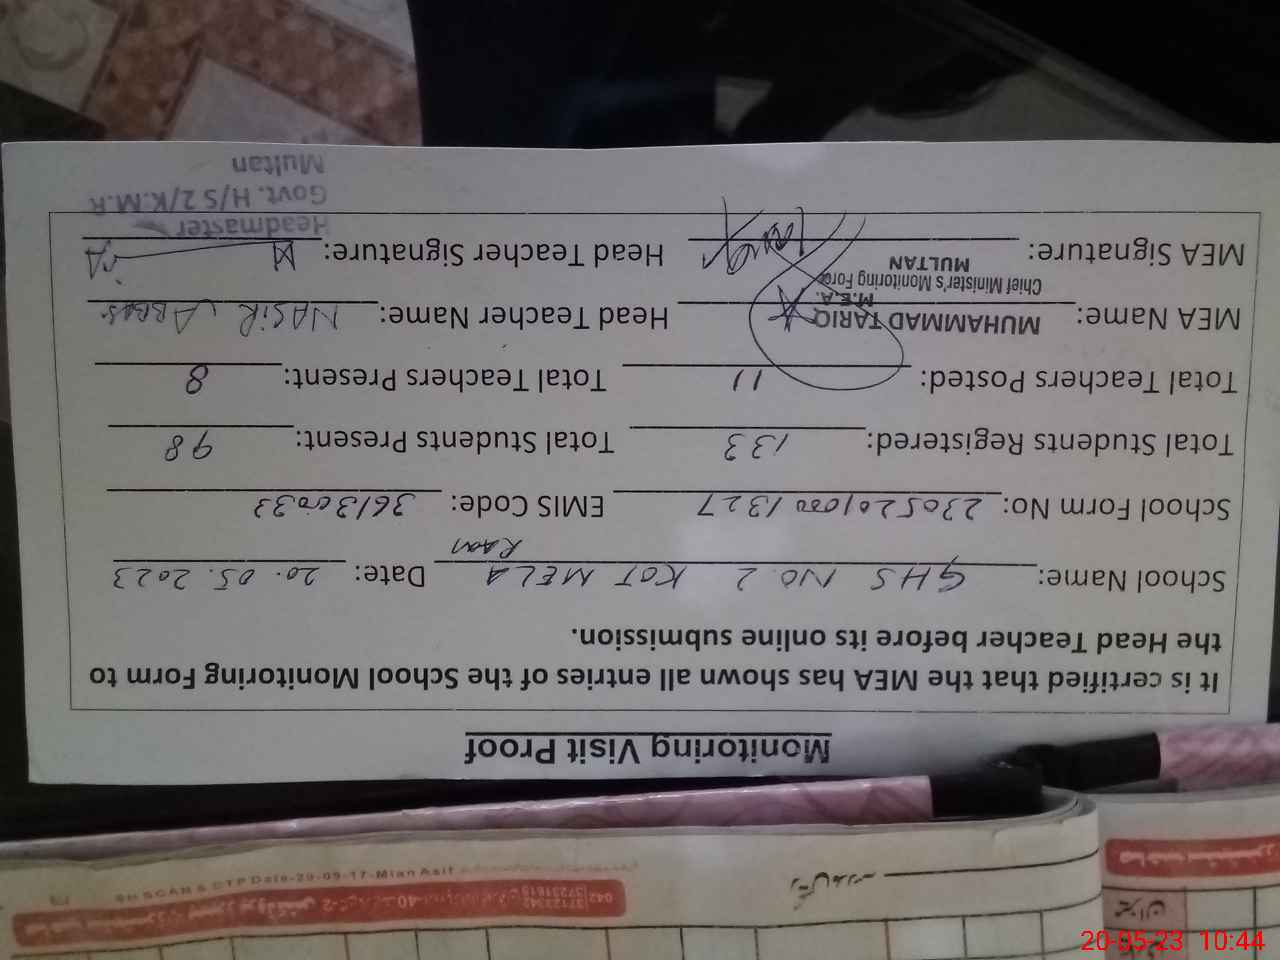 Monitoring Visit Proof
It is certified that the MEA has shown all entries of the School Monitoring Form to
the Head Teacher before its online submission.
School Name: GHS NO. 2 KOT MELA Raan Date: 20.05.2023
School Form No: 23052010001327 EMIS Code: 36130033
Total Students Registered: 133 Total Students Present: 98
Total Teachers Posted: 11 Total Teachers Present: 8
MEA Name: MUHAMMAD TARIQ Head Teacher Name: NASIR ABBAS
M.E.A.
Chief Minister's Monitoring Force
MULTAN
MEA Signature: Head Teacher Signature:
Headmaster
Govt. H/S 2/K.M.R
Multan
SH SCAN & DTP Date-29-09-17-Mian Asif
20-05-23 10:44